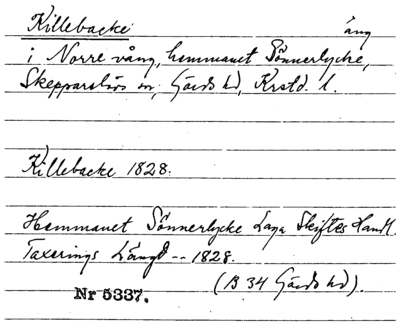 Killebacke äng
i Norre vång, hemmanet Sönnerlycke,
Skepparslövs sn, Gärds hd, Krstd. l.
Killebacke 1828.
Hemmanet Sönnerlycke Laga Skiftes Handl.
Taxerings Längd -- 1828.
(B 34 Gärds hd).
Nr 5337.